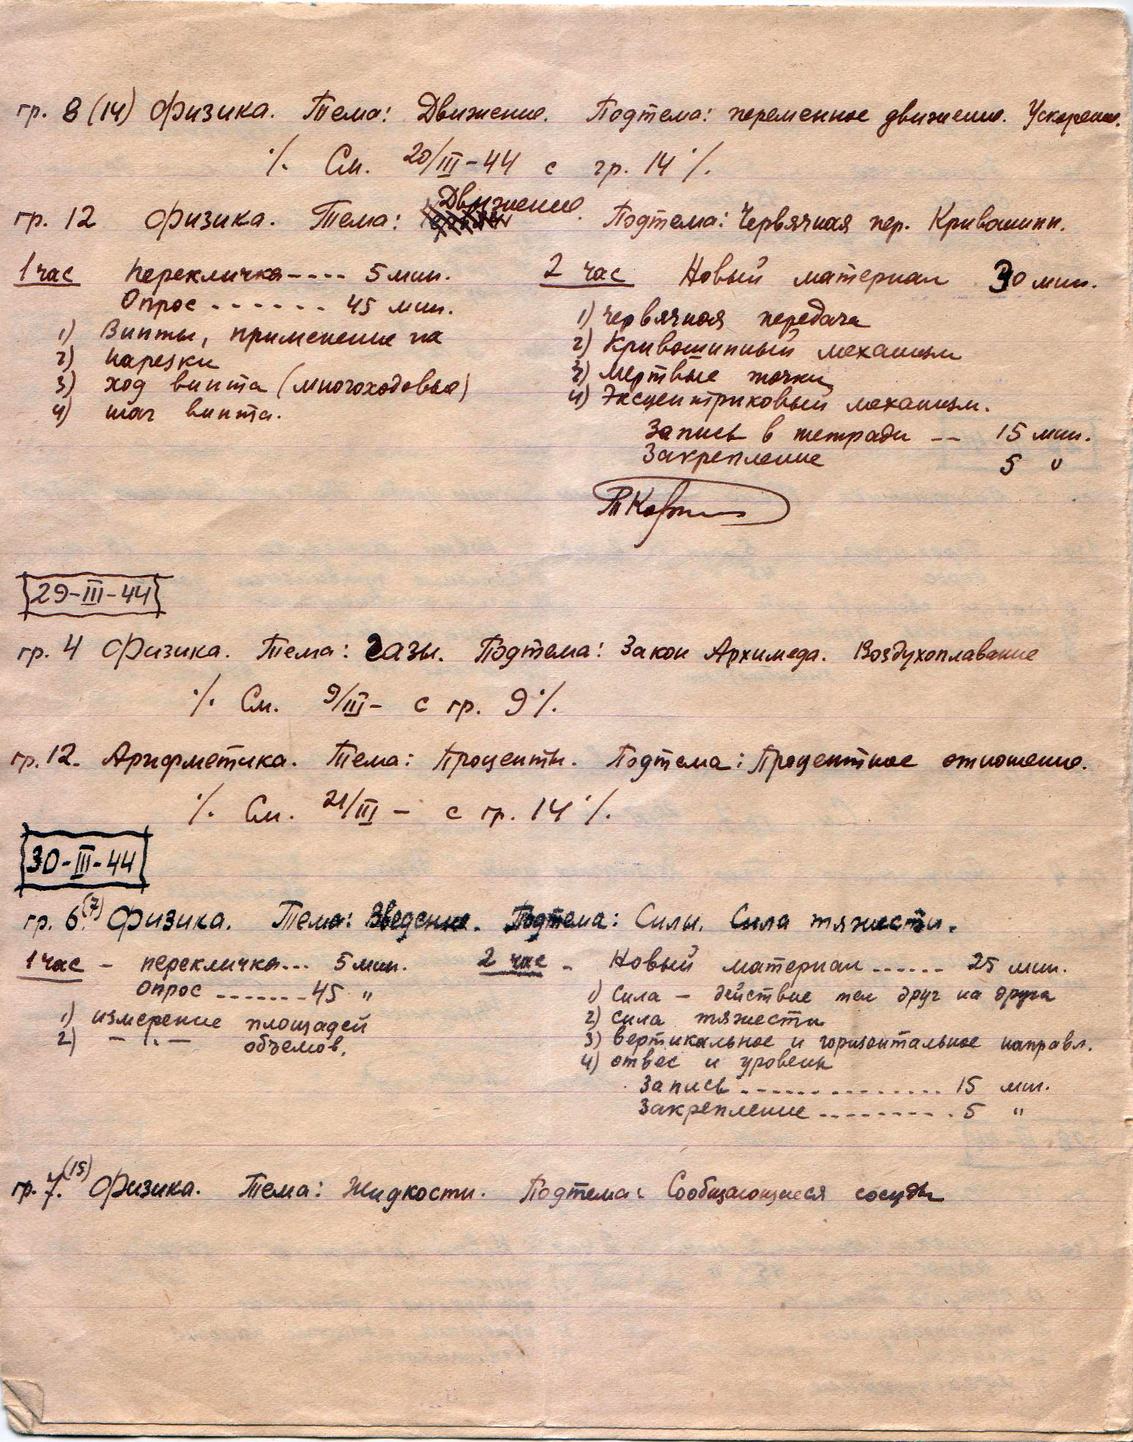 гр. 8 (14) Физика. Тема: Движение. Подтема: переменное движение. Ускорение.
·/. См. 20/III-44 с гр. 14 ·/.
гр. 12 Физика. Тема: Движение. Подтема: Червячная пер. Кривошипн.
1 час Перекличка---- 5 мин.
Опрос ------ 45 мин.
1) Винты, применение на
2) нарезки
3) ход винта (многоходовые)
4) шаг винта.
2 час Новый материал 30 мин.
1) Червячная передача
2) Кривошипный механизм
3) Мертвые точки
4) Эксцентриковый механизм.
Запись в тетради -- 15 мин.
Закрепление 5 "
29-III-44
гр. 4 Физика. Тема: Газы. Подтема: Закон Архимеда. Воздухоплавание
·/. См. 9/III- с гр. 9 ·/.
гр. 12. Арифметика. Тема: Проценты. Подтема: Процентное отношение.
·/. См. 21/III - с гр. 14 ·/.
30-III-44
гр. 6.(7) Физика. Тема: Введение. Подтема: Силы. Сила тяжести.
1 час - перекличка... 5 мин.
опрос ------- 45 "
1) измерение площадей
2) - " - объемов.
2 час - Новый материал ------ 25 мин.
1) Сила - действие тел друг на друга
2) сила тяжести
3) вертикальное и горизонтальное направл.
4) отвес и уровень
Запись ---------------- 15 мин.
Закрепление --------- 5 "
гр. 7.(15) Физика. Тема: Жидкости. Подтема: Сообщающиеся сосуды